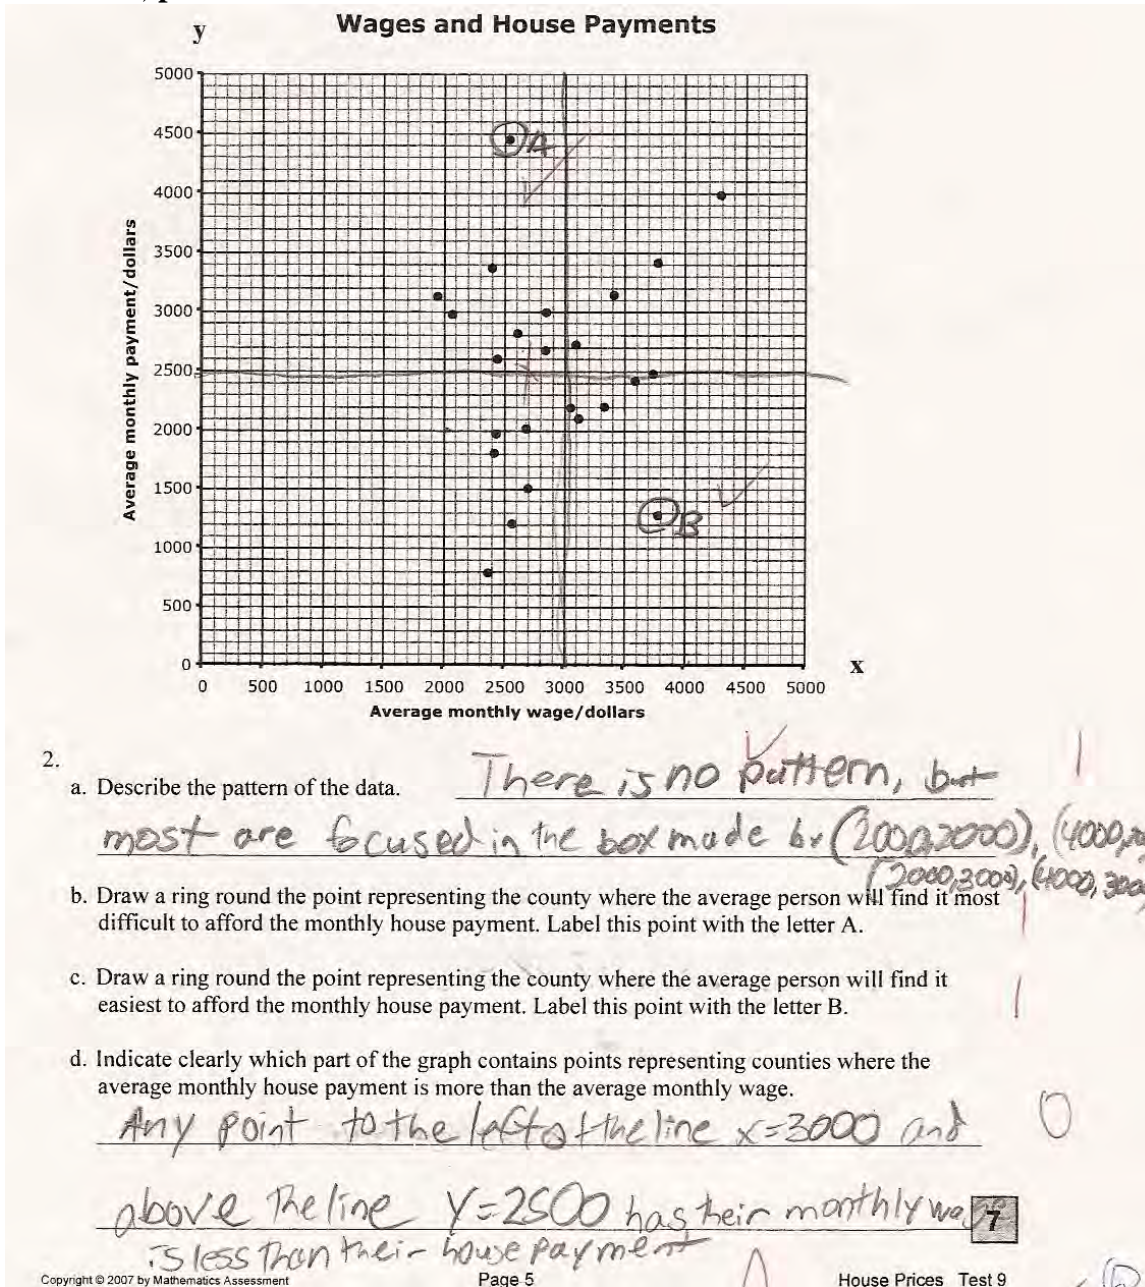 Wages and House Payments
y
5000
4500
A
4000
3500
3000
2500
2000
1500
B
1000
500
0
x
0 500 1000 1500 2000 2500 3000 3500 4000 4500 5000
Average monthly payment/dollars
Average monthly wage/dollars
2.
a. Describe the pattern of the data. There is no pattern, but
most are focused in the box made by (2000,2000), (4000,
(2000,3000), (4000, 300
b. Draw a ring round the point representing the county where the average person will find it most
difficult to afford the monthly house payment. Label this point with the letter A.
c. Draw a ring round the point representing the county where the average person will find it
easiest to afford the monthly house payment. Label this point with the letter B.
d. Indicate clearly which part of the graph contains points representing counties where the
average monthly house payment is more than the average monthly wage.
Any point to the left of the line x=3000 and
above the line y=2500 has their monthly wage
is less than their house payment
1
1
1
0
7
Copyright © 2007 by Mathematics Assessment Page 5 House Prices Test 9